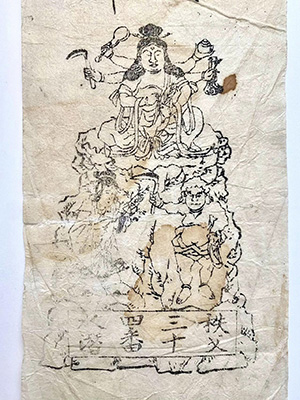 秩父
三十
四番
水潜